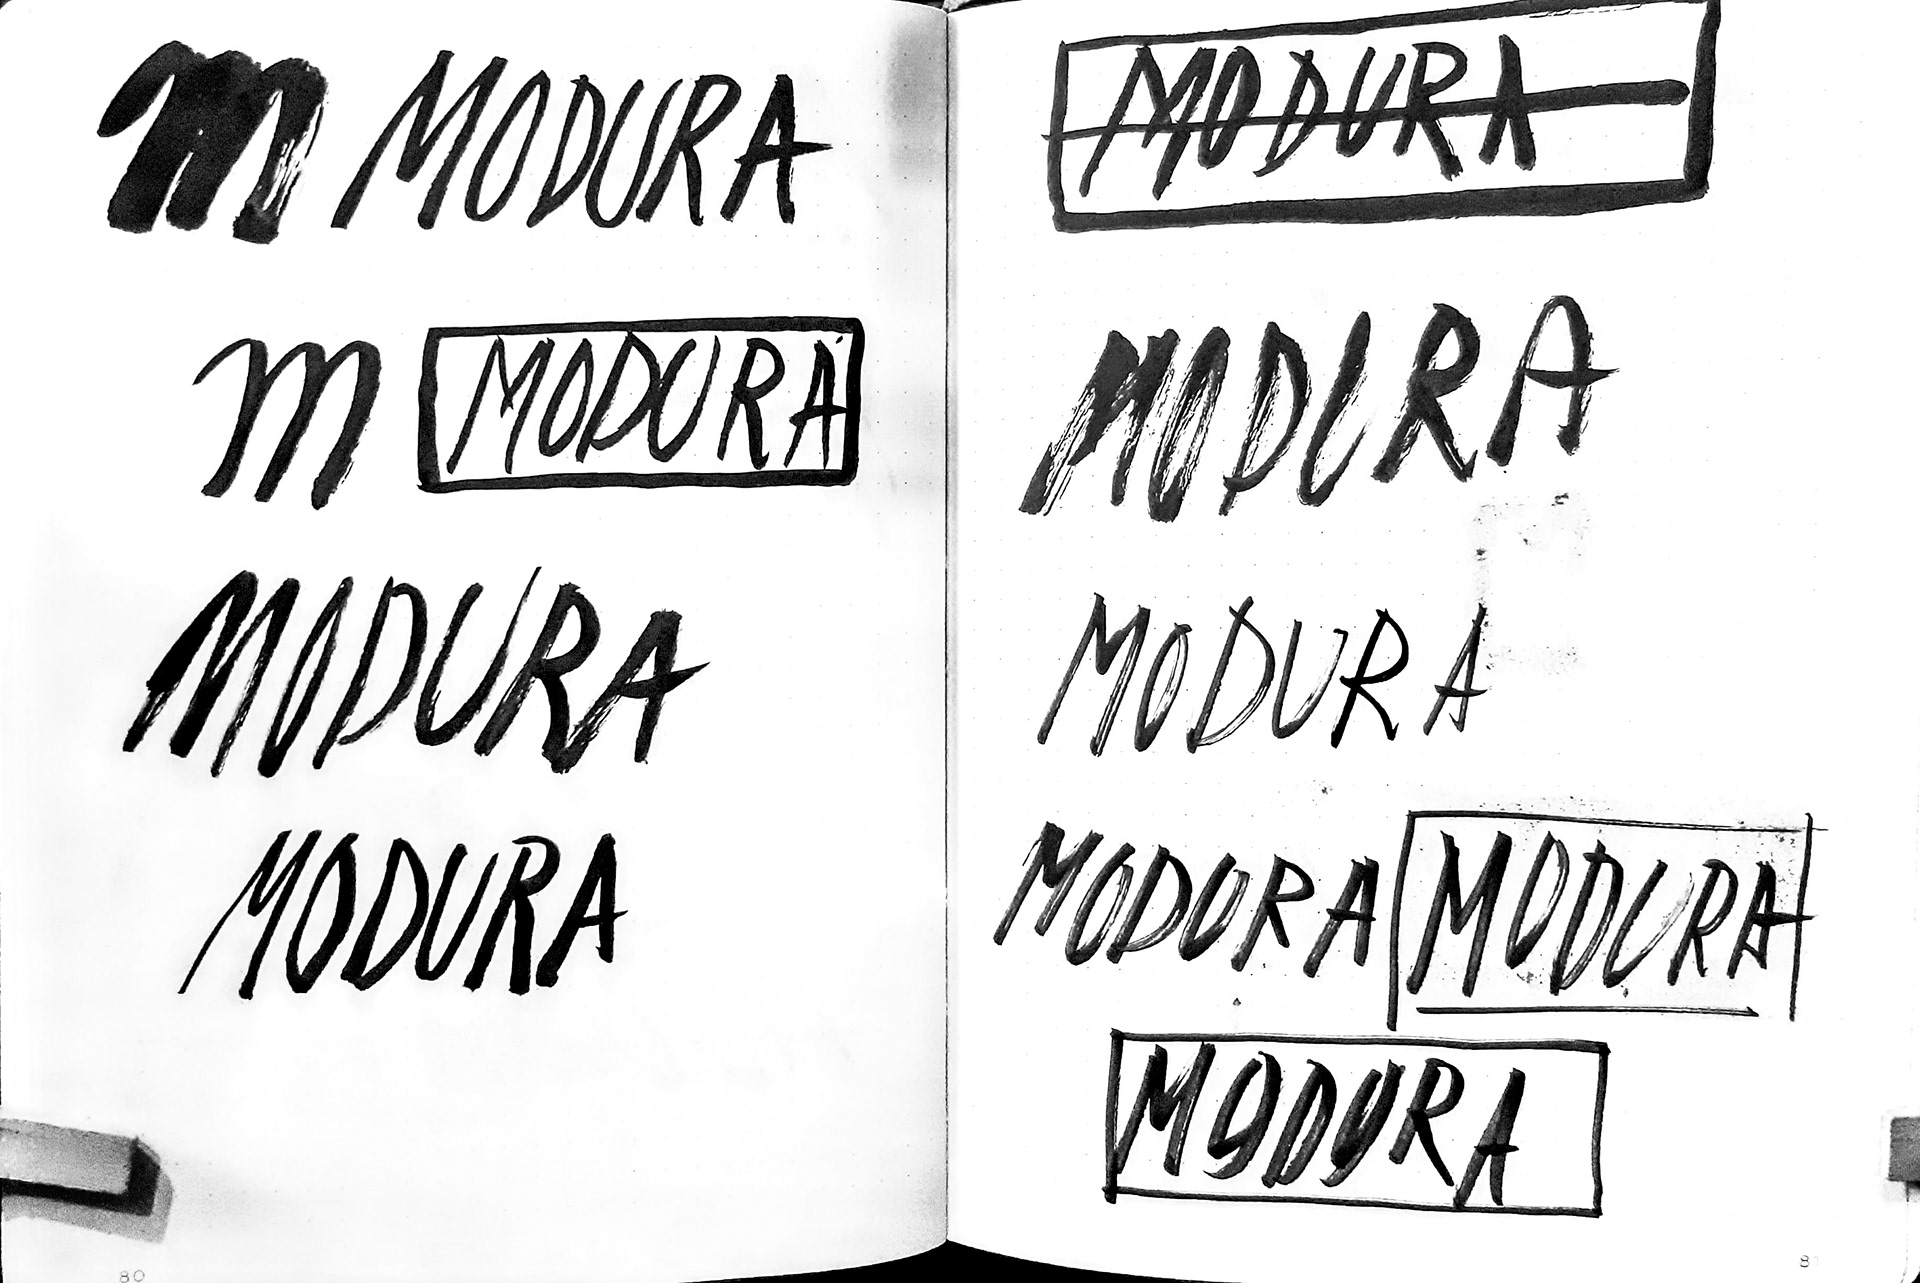 m MODURA
m MODURA
MODURA
MODURA
80
MODURA
MODURA
MODURA
MODURA MODURA
MODURA
81